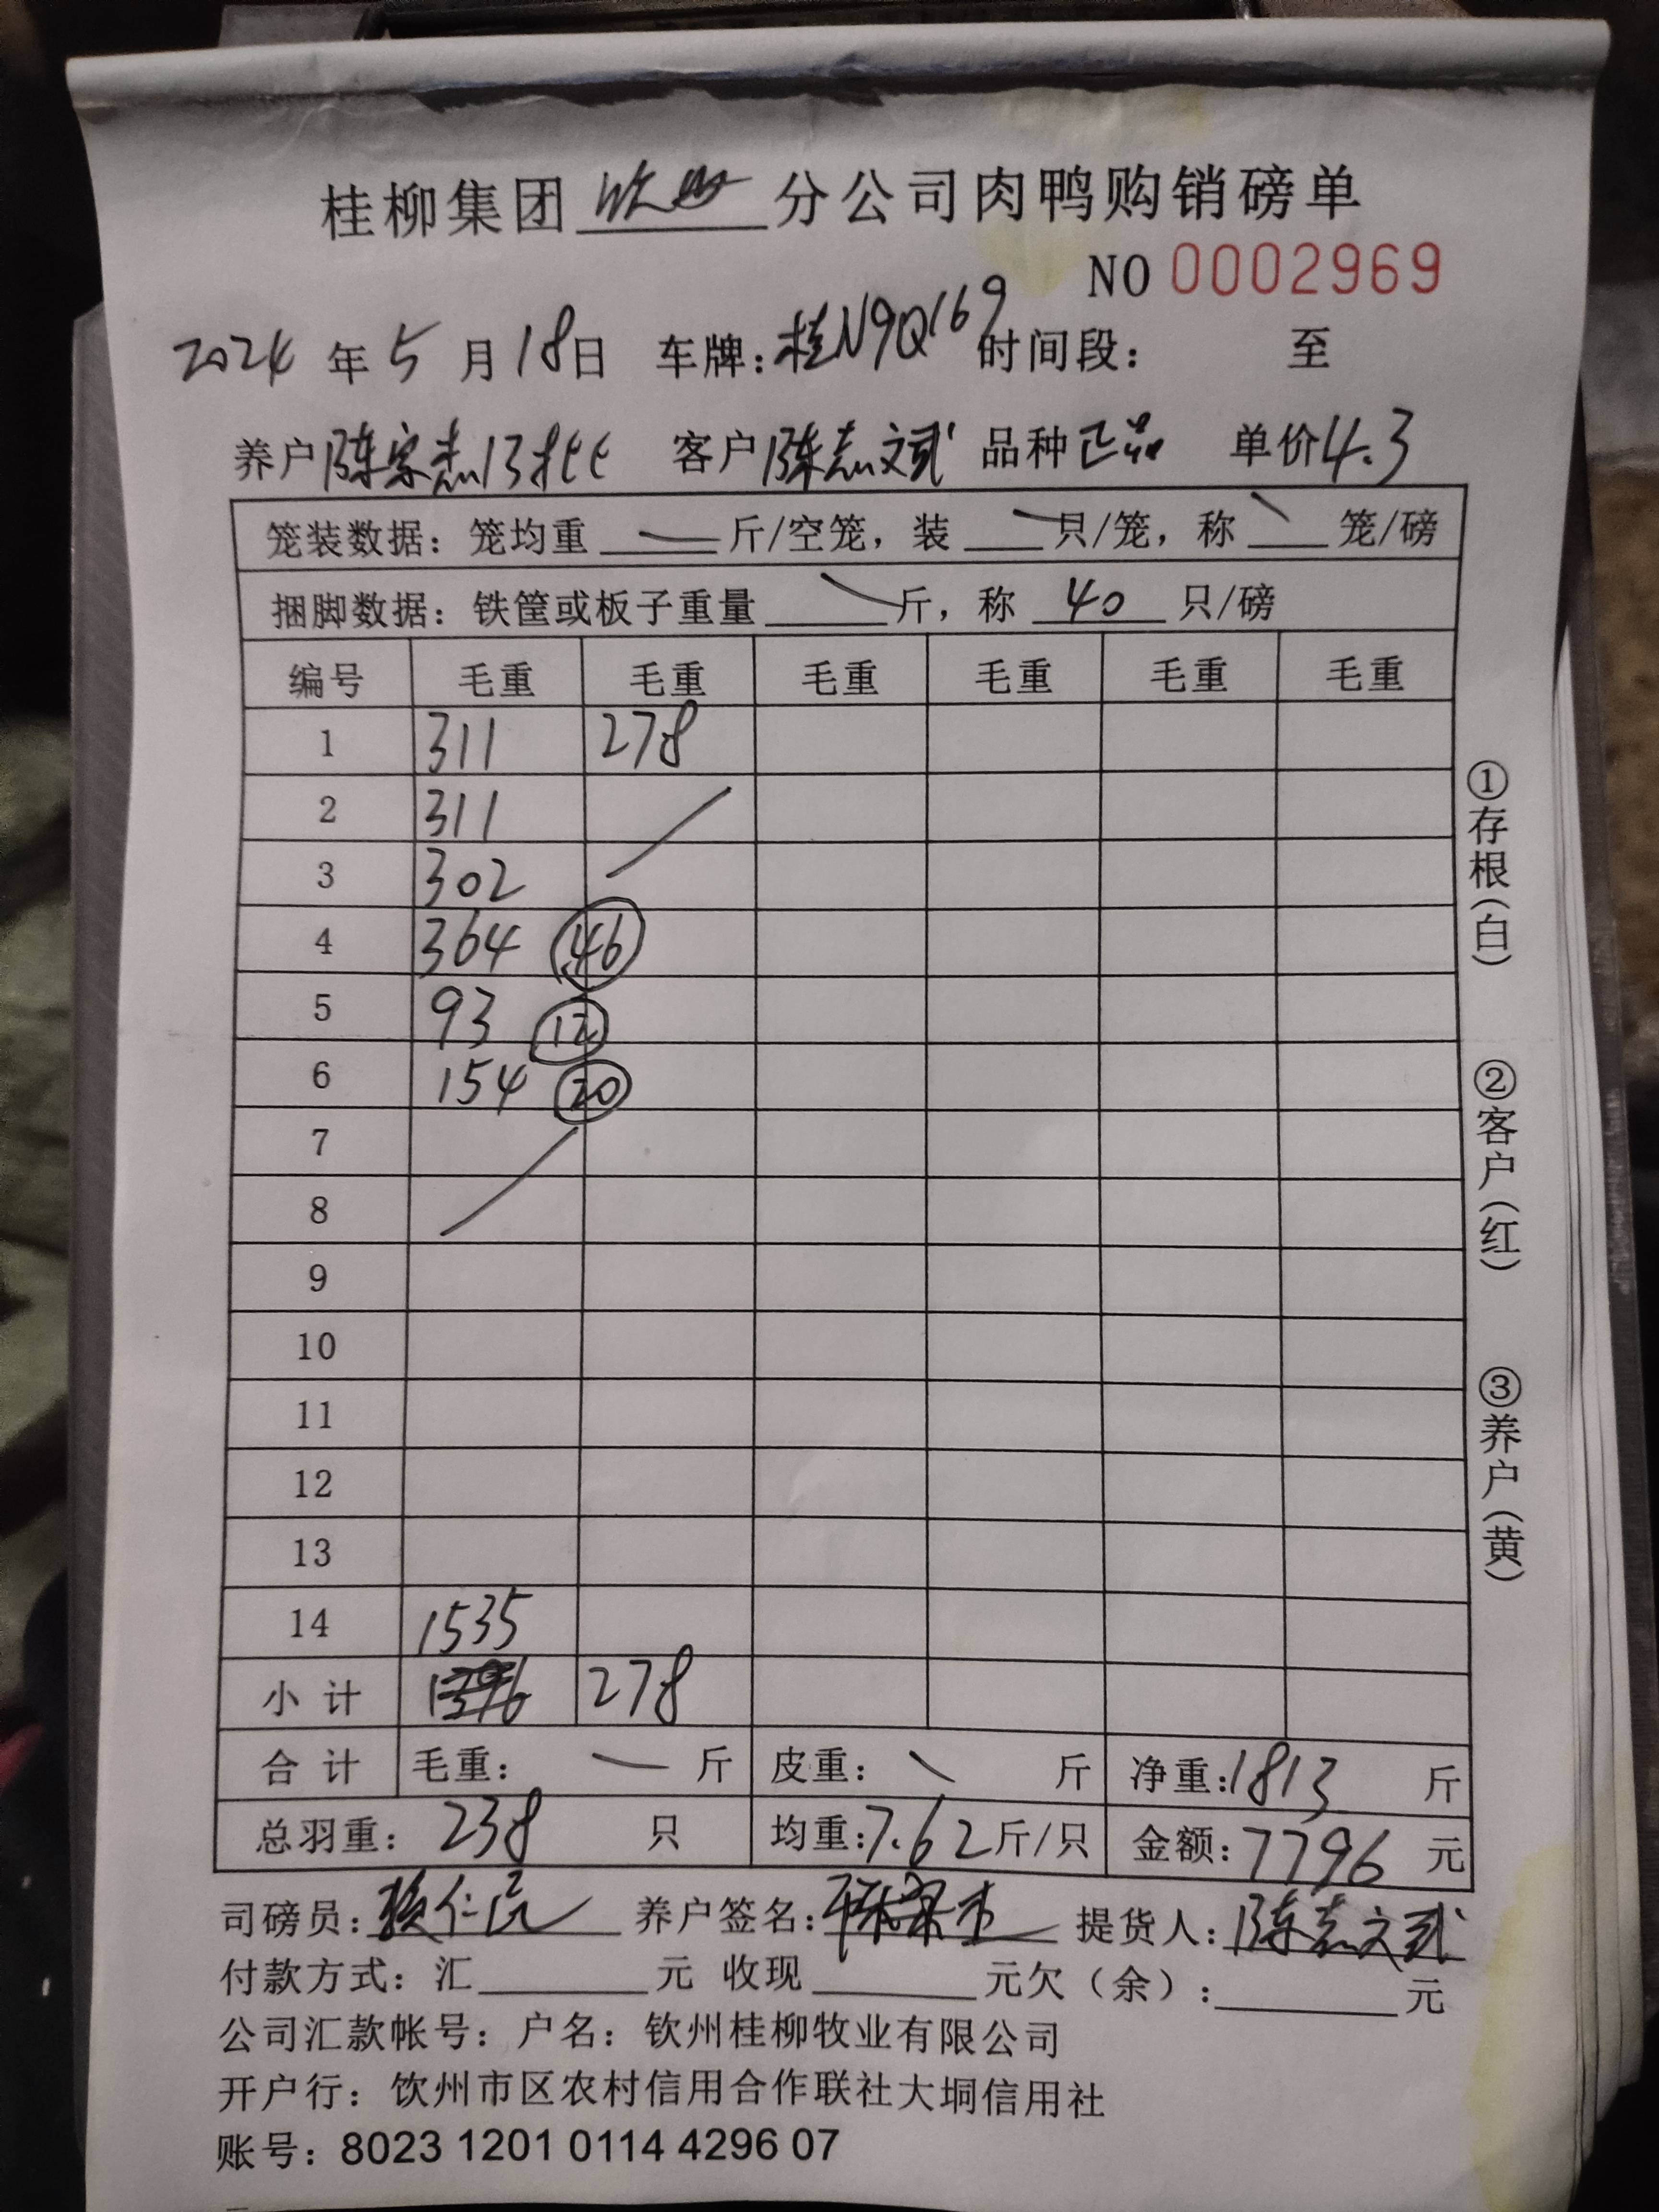 桂柳集团 钦州 分公司肉鸭购销磅单
NO 0002969
2024 年 5 月 18 日 车牌:桂N9Q169 时间段: 至
养户 陈宗杰13批 客户 陈志斌 品种 正品 单价 4.3
笼装数据: 笼均重 — 斤/空笼, 装 — 只/笼, 称 — 笼/磅
捆脚数据: 铁筐或板子重量 — 斤, 称 40 只/磅
编号 毛重 毛重 毛重 毛重 毛重 毛重
1 311 278
2 311
3 302
4 364 46
5 93 12
6 154 20
7
8
9
10
11
12
13
14 1535
小计 1396 278
合计 毛重: — 斤 皮重: — 斤 净重: 1813 斤
总羽重: 238 只 均重: 7.62 斤/只 金额: 7796 元
司磅员: 养户签名: 陈宗杰 提货人: 陈志斌
付款方式: 汇 元 收现 元 欠(余): 元
公司汇款帐号: 户名: 钦州桂柳牧业有限公司
开户行: 饮州市区农村信用合作联社大垌信用社
账号: 8023 1201 0114 4296 07
①存根(白)
②客户(红)
③养户(黄)